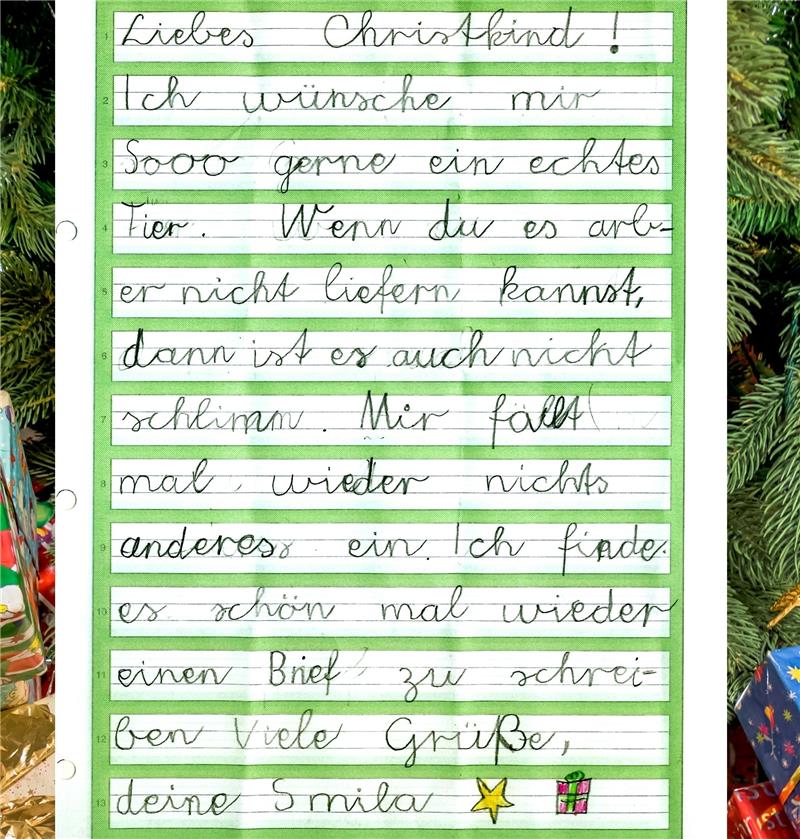 Liebes Christkind!
Ich wünsche mir
Sooo gerne ein echtes
Tier. Wenn du es arb-
er nicht liefern kannst,
dann ist es auch nicht
schlimm. Mir fällt
mal wieder nichts
anderes ein. Ich finde
es schön mal wieder
einen Brief zu schrei-
ben Viele Grüße,
deine Smila